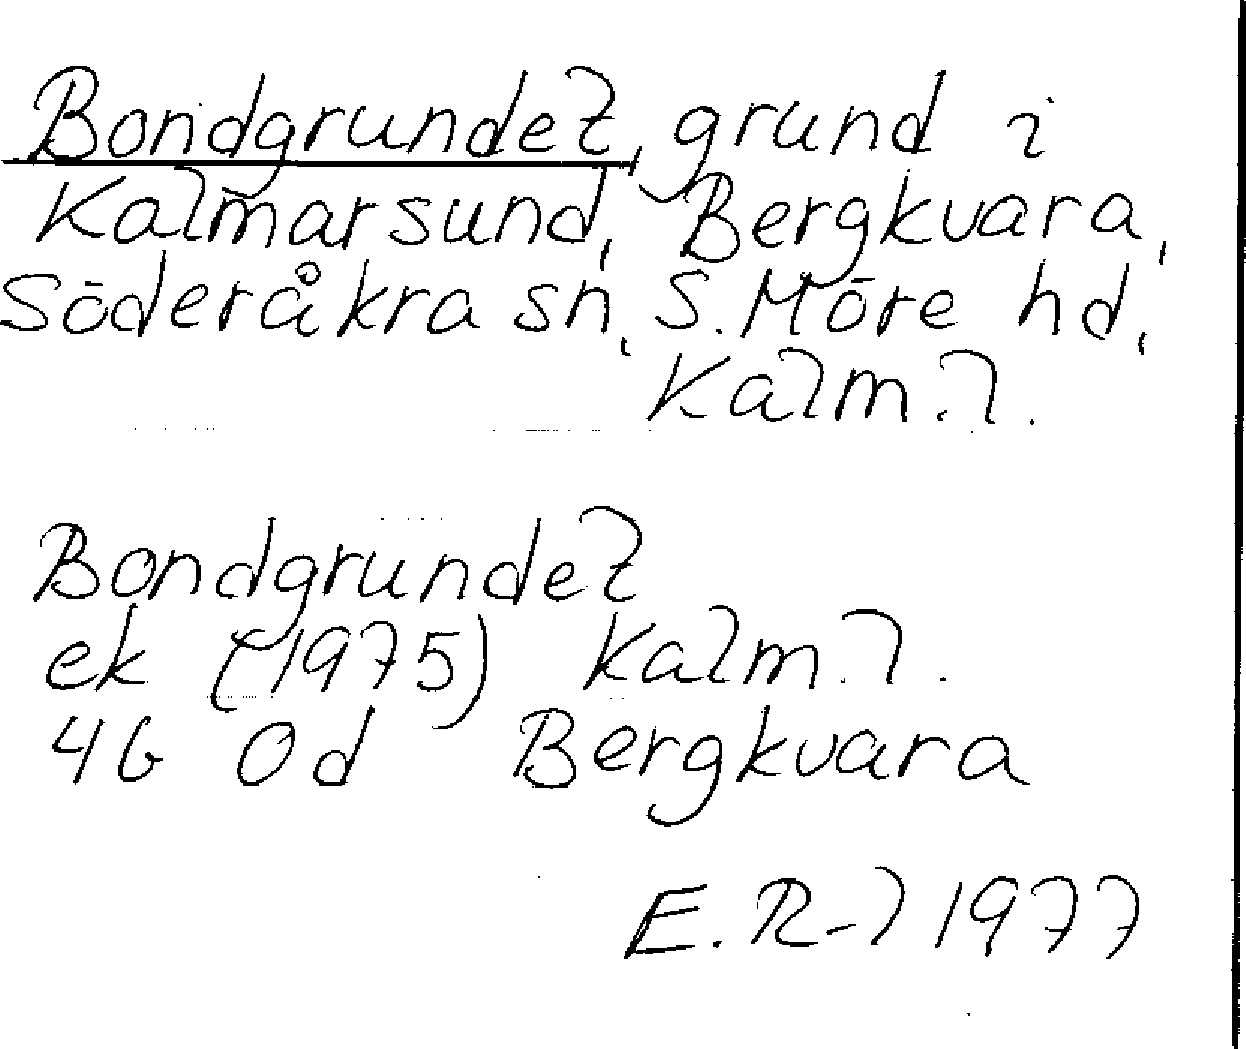 Bondgrundet, grund i
Kalmarsund, Bergkvara,
Söderåkra sn, S. Möre hd,
Kalm. l.
Bondgrundet
ek (1975) Kalm. l.
4G 0d Bergkvara
E. R-l 1977